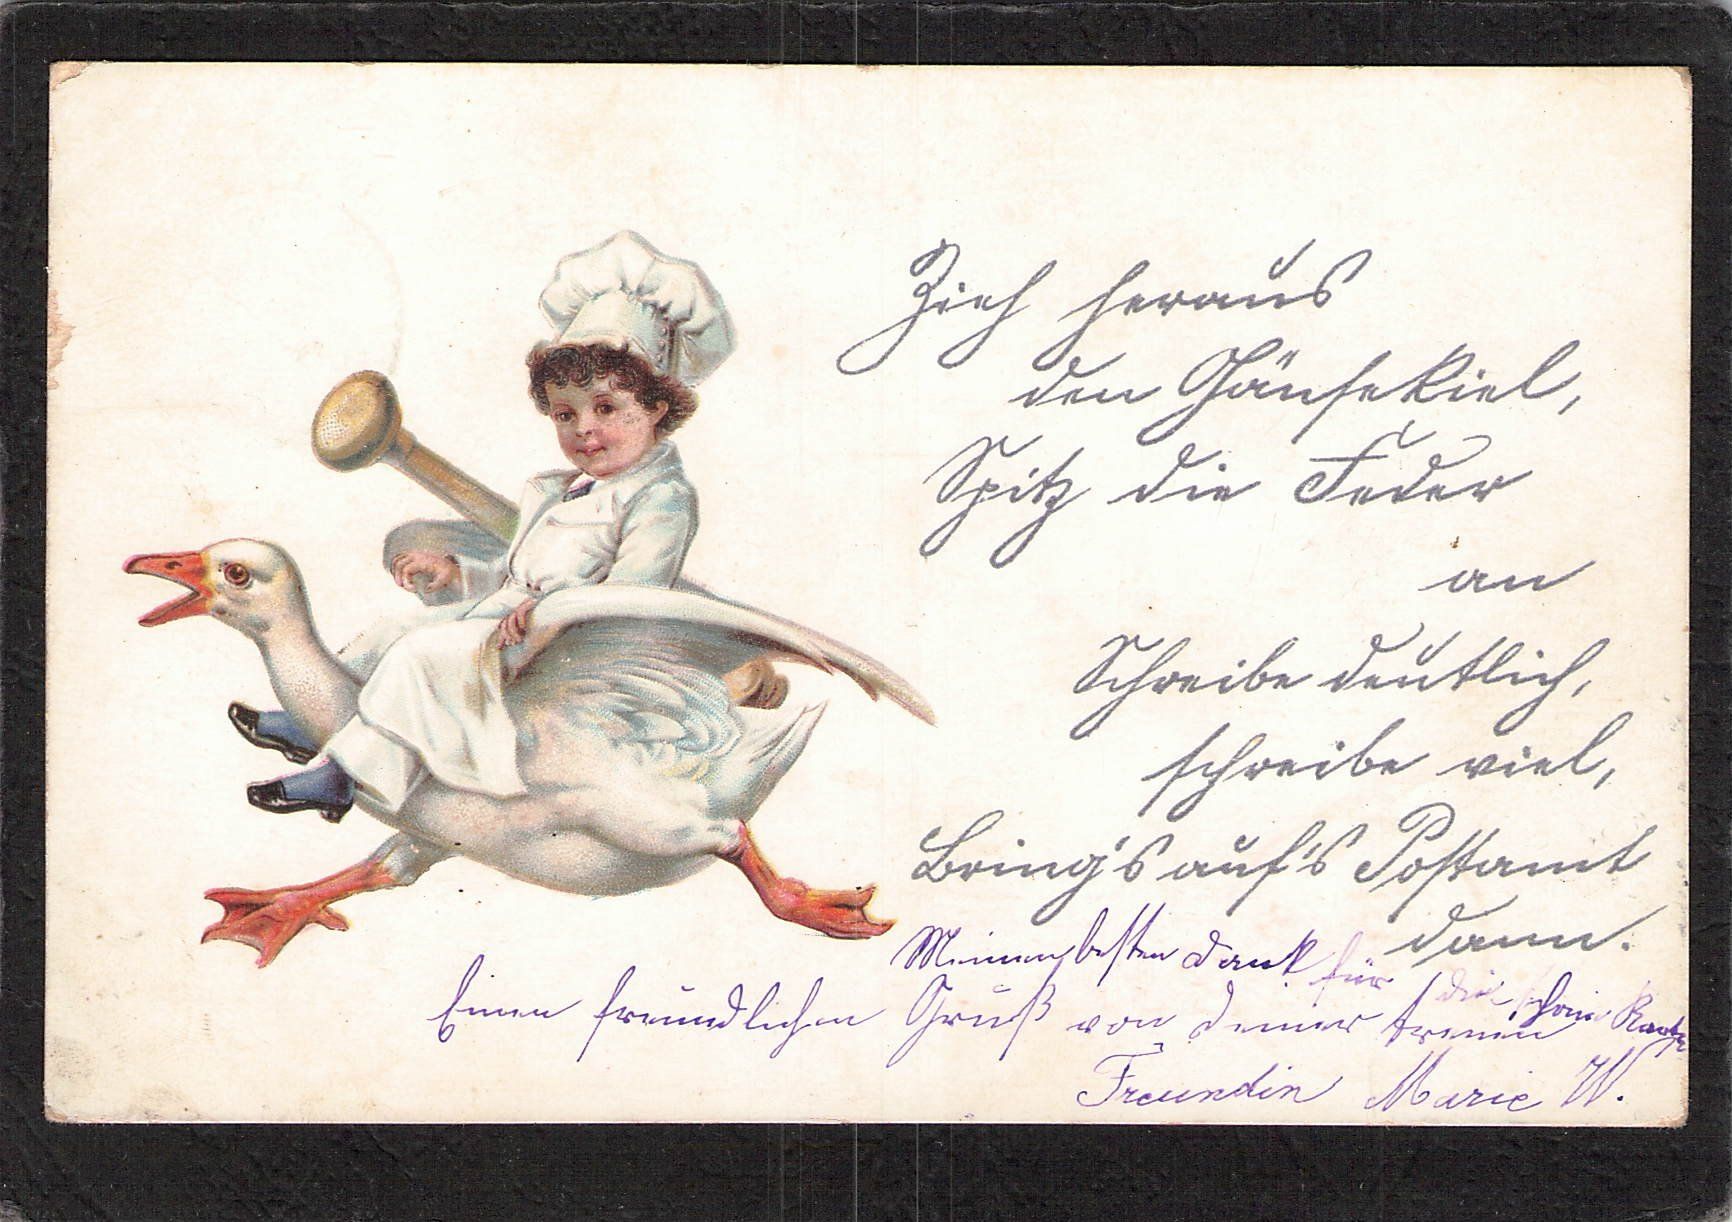 Zieh heraus
den Gänsekiel,
Spitz die Feder
an
Schreibe deutlich,
schreibe viel,
Bring's auf's Postamt
dann.
Meinen besten Dank für die schöne Karte
Einen freundlichen Gruß von deiner treuen
Freundin Marie W.